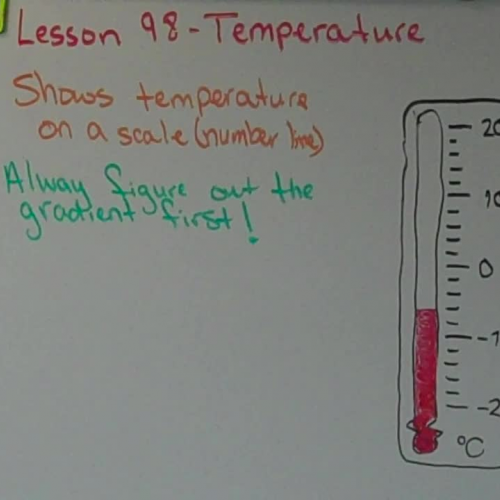 Lesson 98 - Temperature
Shows temperature
on a scale (number line)
Alway figure out the
gradient first!
20
10
0
-1
-2
°C